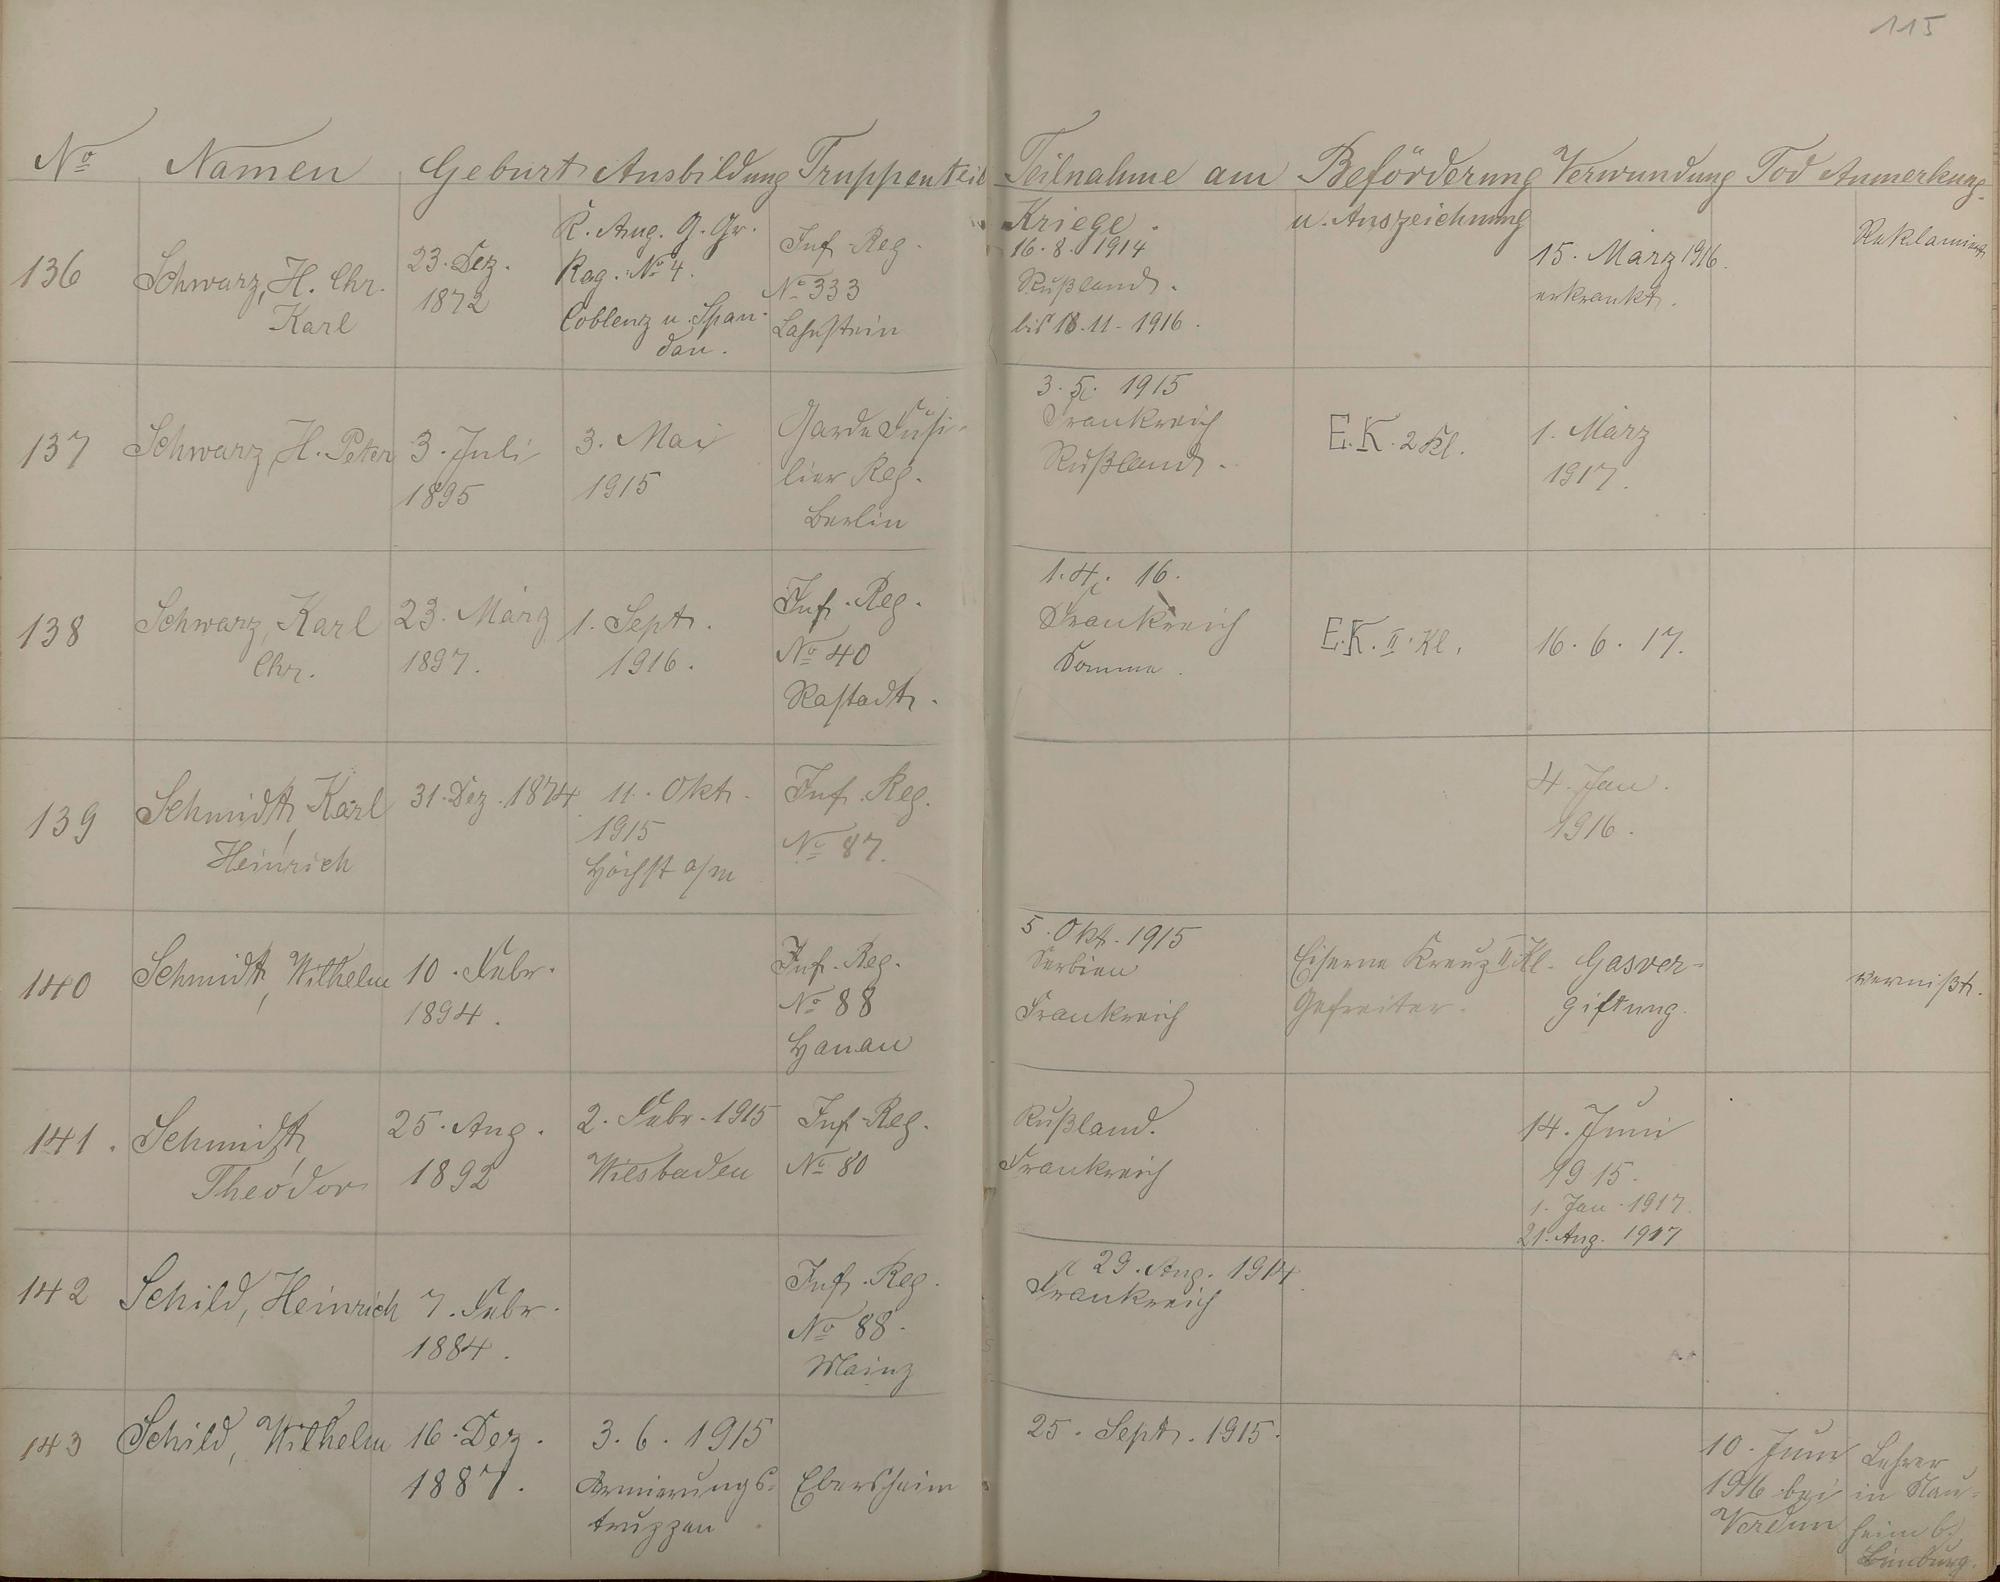 115
No Namen Geburt Ausbildung Truppenteil Teilnahme am Beförderung Verwundung Tod Anmerkung.
Kriege. u. Auszeichnung
136
Schwarz, H. Chr.
Karl
23. Dez.
1872
K. Aug. G. Gr.
Reg. No 4.
Coblenz u. Span-
dau.
Inf. Reg.
No 333
Lahnstein
16. 8. 1914
Rußland.
bis 18. 11. 1916.
15. März 1916.
erkrankt.
Reklamiert
137
Schwarz, H. Peter
3. Juli
1895
3. Mai
1915
Garde Füsi-
lier Reg.
Berlin
3. 5. 1915
Frankreich
Rußland.
E.K. 2 Kl.
1. März
1917.
138
Schwarz, Karl
Chr.
23. März
1897.
1. Sept.
1916.
Inf. Reg.
No 40
Rastadt.
1. 4. 16.
Frankreich
Somme.
E.K. II. Kl.
16. 6. 17.
139
Schmidt, Karl
Heinrich
31. Dez. 1874
11. Okt.
1915
Höchst a/m
Inf. Reg.
No 87.
4. Jan.
1916.
140
Schmidt, Wilhelm
10. Febr.
1894.
Inf. Reg.
No 88
Hanau
5. Okt. 1915
Serbien
Frankreich
Eiserne Kreuz II Kl.
Gefreiter.
Gasver-
giftung.
vermißt.
141.
Schmidt,
Theodor
25. Aug.
1892
2. Febr. 1915
Wiesbaden
Inf. Reg.
No 80
Rußland.
Frankreich
14. Juni
1915.
1. Jan. 1917.
21. Aug. 1917
142
Schild, Heinrich
7. Febr.
1884.
Inf. Reg.
No 88.
Mainz
29. Aug. 1914
Frankreich
143
Schild, Wilhelm
16. Dez.
1887.
3. 6. 1915
Armierungs-
truppen
Ebersheim
25. Sept. 1915.
10. Juni
1916 bei
Verdun
Lehrer
in Nau-
heim b.
Limburg.